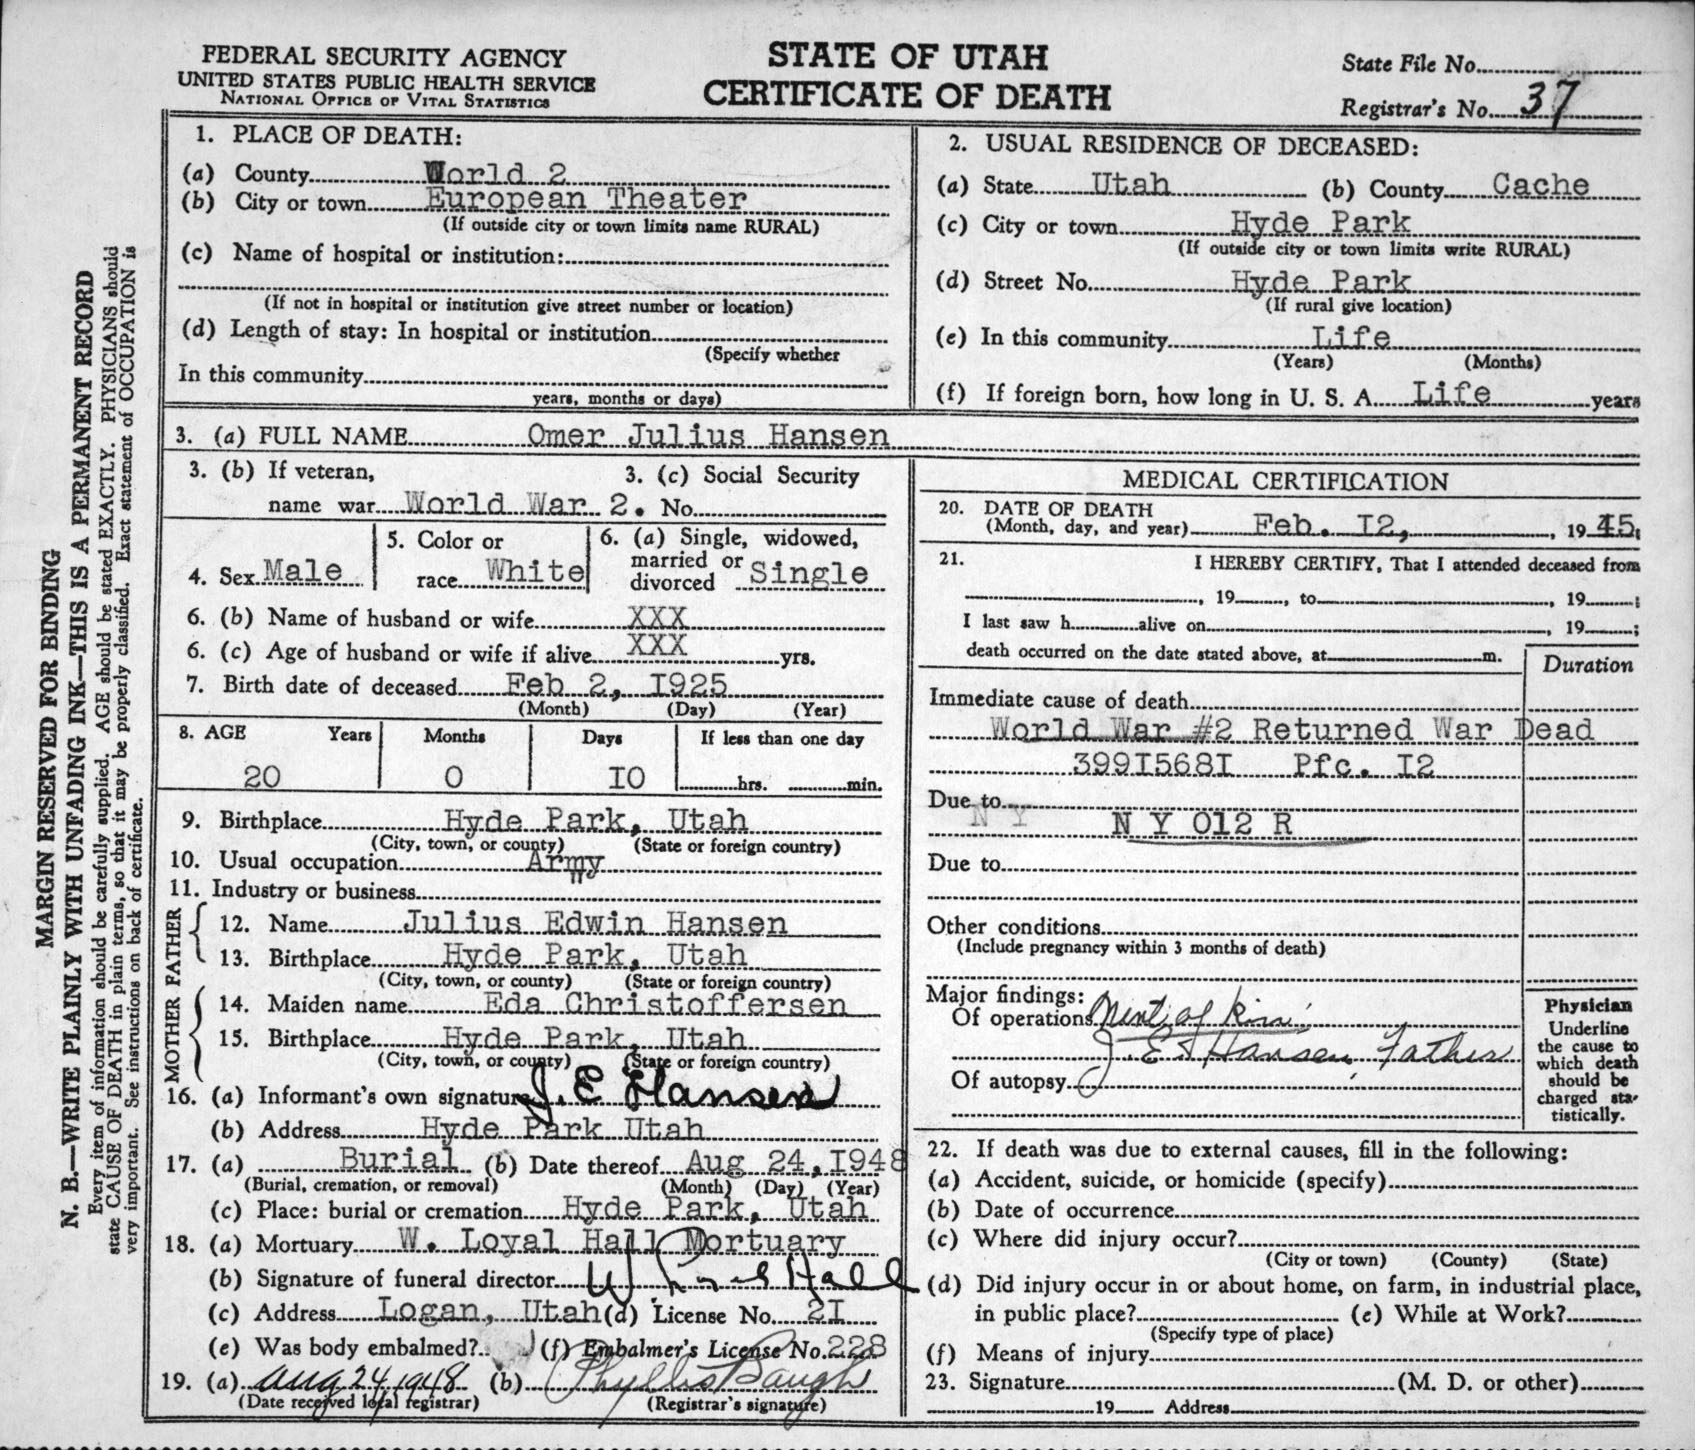 FEDERAL SECURITY AGENCY
UNITED STATES PUBLIC HEALTH SERVICE
NATIONAL OFFICE OF VITAL STATISTICS
STATE OF UTAH
CERTIFICATE OF DEATH
State File No.
Registrar's No. 37
MARGIN RESERVED FOR BINDING
N. B.—WRITE PLAINLY WITH UNFADING INK—THIS IS A PERMANENT RECORD
Every item of information should be carefully supplied. AGE should be stated EXACTLY. PHYSICIANS should
state CAUSE OF DEATH in plain terms, so that it may be properly classified. Exact statement of OCCUPATION is
very important. See instructions on back of certificate.
1. PLACE OF DEATH:
(a) County World 2
(b) City or town European Theater
(If outside city or town limits name RURAL)
(c) Name of hospital or institution:
(If not in hospital or institution give street number or location)
(d) Length of stay: In hospital or institution
(Specify whether
In this community
years, months or days)
2. USUAL RESIDENCE OF DECEASED:
(a) State Utah (b) County Cache
(c) City or town Hyde Park
(If outside city or town limits write RURAL)
(d) Street No. Hyde Park
(If rural give location)
(e) In this community Life
(Years) (Months)
(f) If foreign born, how long in U. S. A. Life years
3. (a) FULL NAME Omer Julius Hansen
3. (b) If veteran, 3. (c) Social Security
name war World War 2. No.
4. Sex Male
5. Color or
race White
6. (a) Single, widowed,
married or
divorced Single
6. (b) Name of husband or wife XXX
6. (c) Age of husband or wife if alive XXX yrs.
7. Birth date of deceased Feb 2, I925
(Month) (Day) (Year)
8. AGE Years Months Days If less than one day
20 0 IO hrs. min.
9. Birthplace Hyde Park, Utah
(City, town, or county) (State or foreign country)
10. Usual occupation Army
11. Industry or business "
FATHER
12. Name Julius Edwin Hansen
13. Birthplace Hyde Park, Utah
(City, town, or county) (State or foreign country)
MOTHER
14. Maiden name Eda Christoffersen
15. Birthplace Hyde Park, Utah
(City, town, or county) (State or foreign country)
16. (a) Informant's own signature J. E Hansen
(b) Address Hyde Park Utah
17. (a) Burial (b) Date thereof Aug 24, I948
(Burial, cremation, or removal) (Month) (Day) (Year)
(c) Place: burial or cremation Hyde Park, Utah
18. (a) Mortuary W. Loyal Hall Mortuary
(b) Signature of funeral director W. Loyal Hall
(c) Address Logan, Utah (d) License No. 2I
(e) Was body embalmed? (f) Embalmer's License No. 228
19. (a) Aug 24, 1948 (b) Phyllis Baugh
(Date received local registrar) (Registrar's signature)
MEDICAL CERTIFICATION
20. DATE OF DEATH
(Month, day, and year) Feb. I2, , 19 45,
21. I HEREBY CERTIFY, That I attended deceased from
, 19 , to , 19 ;
I last saw h alive on , 19 ;
death occurred on the date stated above, at m.
Duration
Immediate cause of death
World War #2 Returned War Dead
399I568I Pfc. I2
Due to
N Y N Y 0I2 R
Due to
Other conditions
(Include pregnancy within 3 months of death)
Major findings:
Of operations Next of kin
J. E. Hansen, Father
Of autopsy
Physician
Underline
the cause to
which death
should be
charged sta-
tistically.
22. If death was due to external causes, fill in the following:
(a) Accident, suicide, or homicide (specify)
(b) Date of occurrence
(c) Where did injury occur?
(City or town) (County) (State)
(d) Did injury occur in or about home, on farm, in industrial place,
in public place? (e) While at Work?
(Specify type of place)
(f) Means of injury
23. Signature (M. D. or other)
19 Address